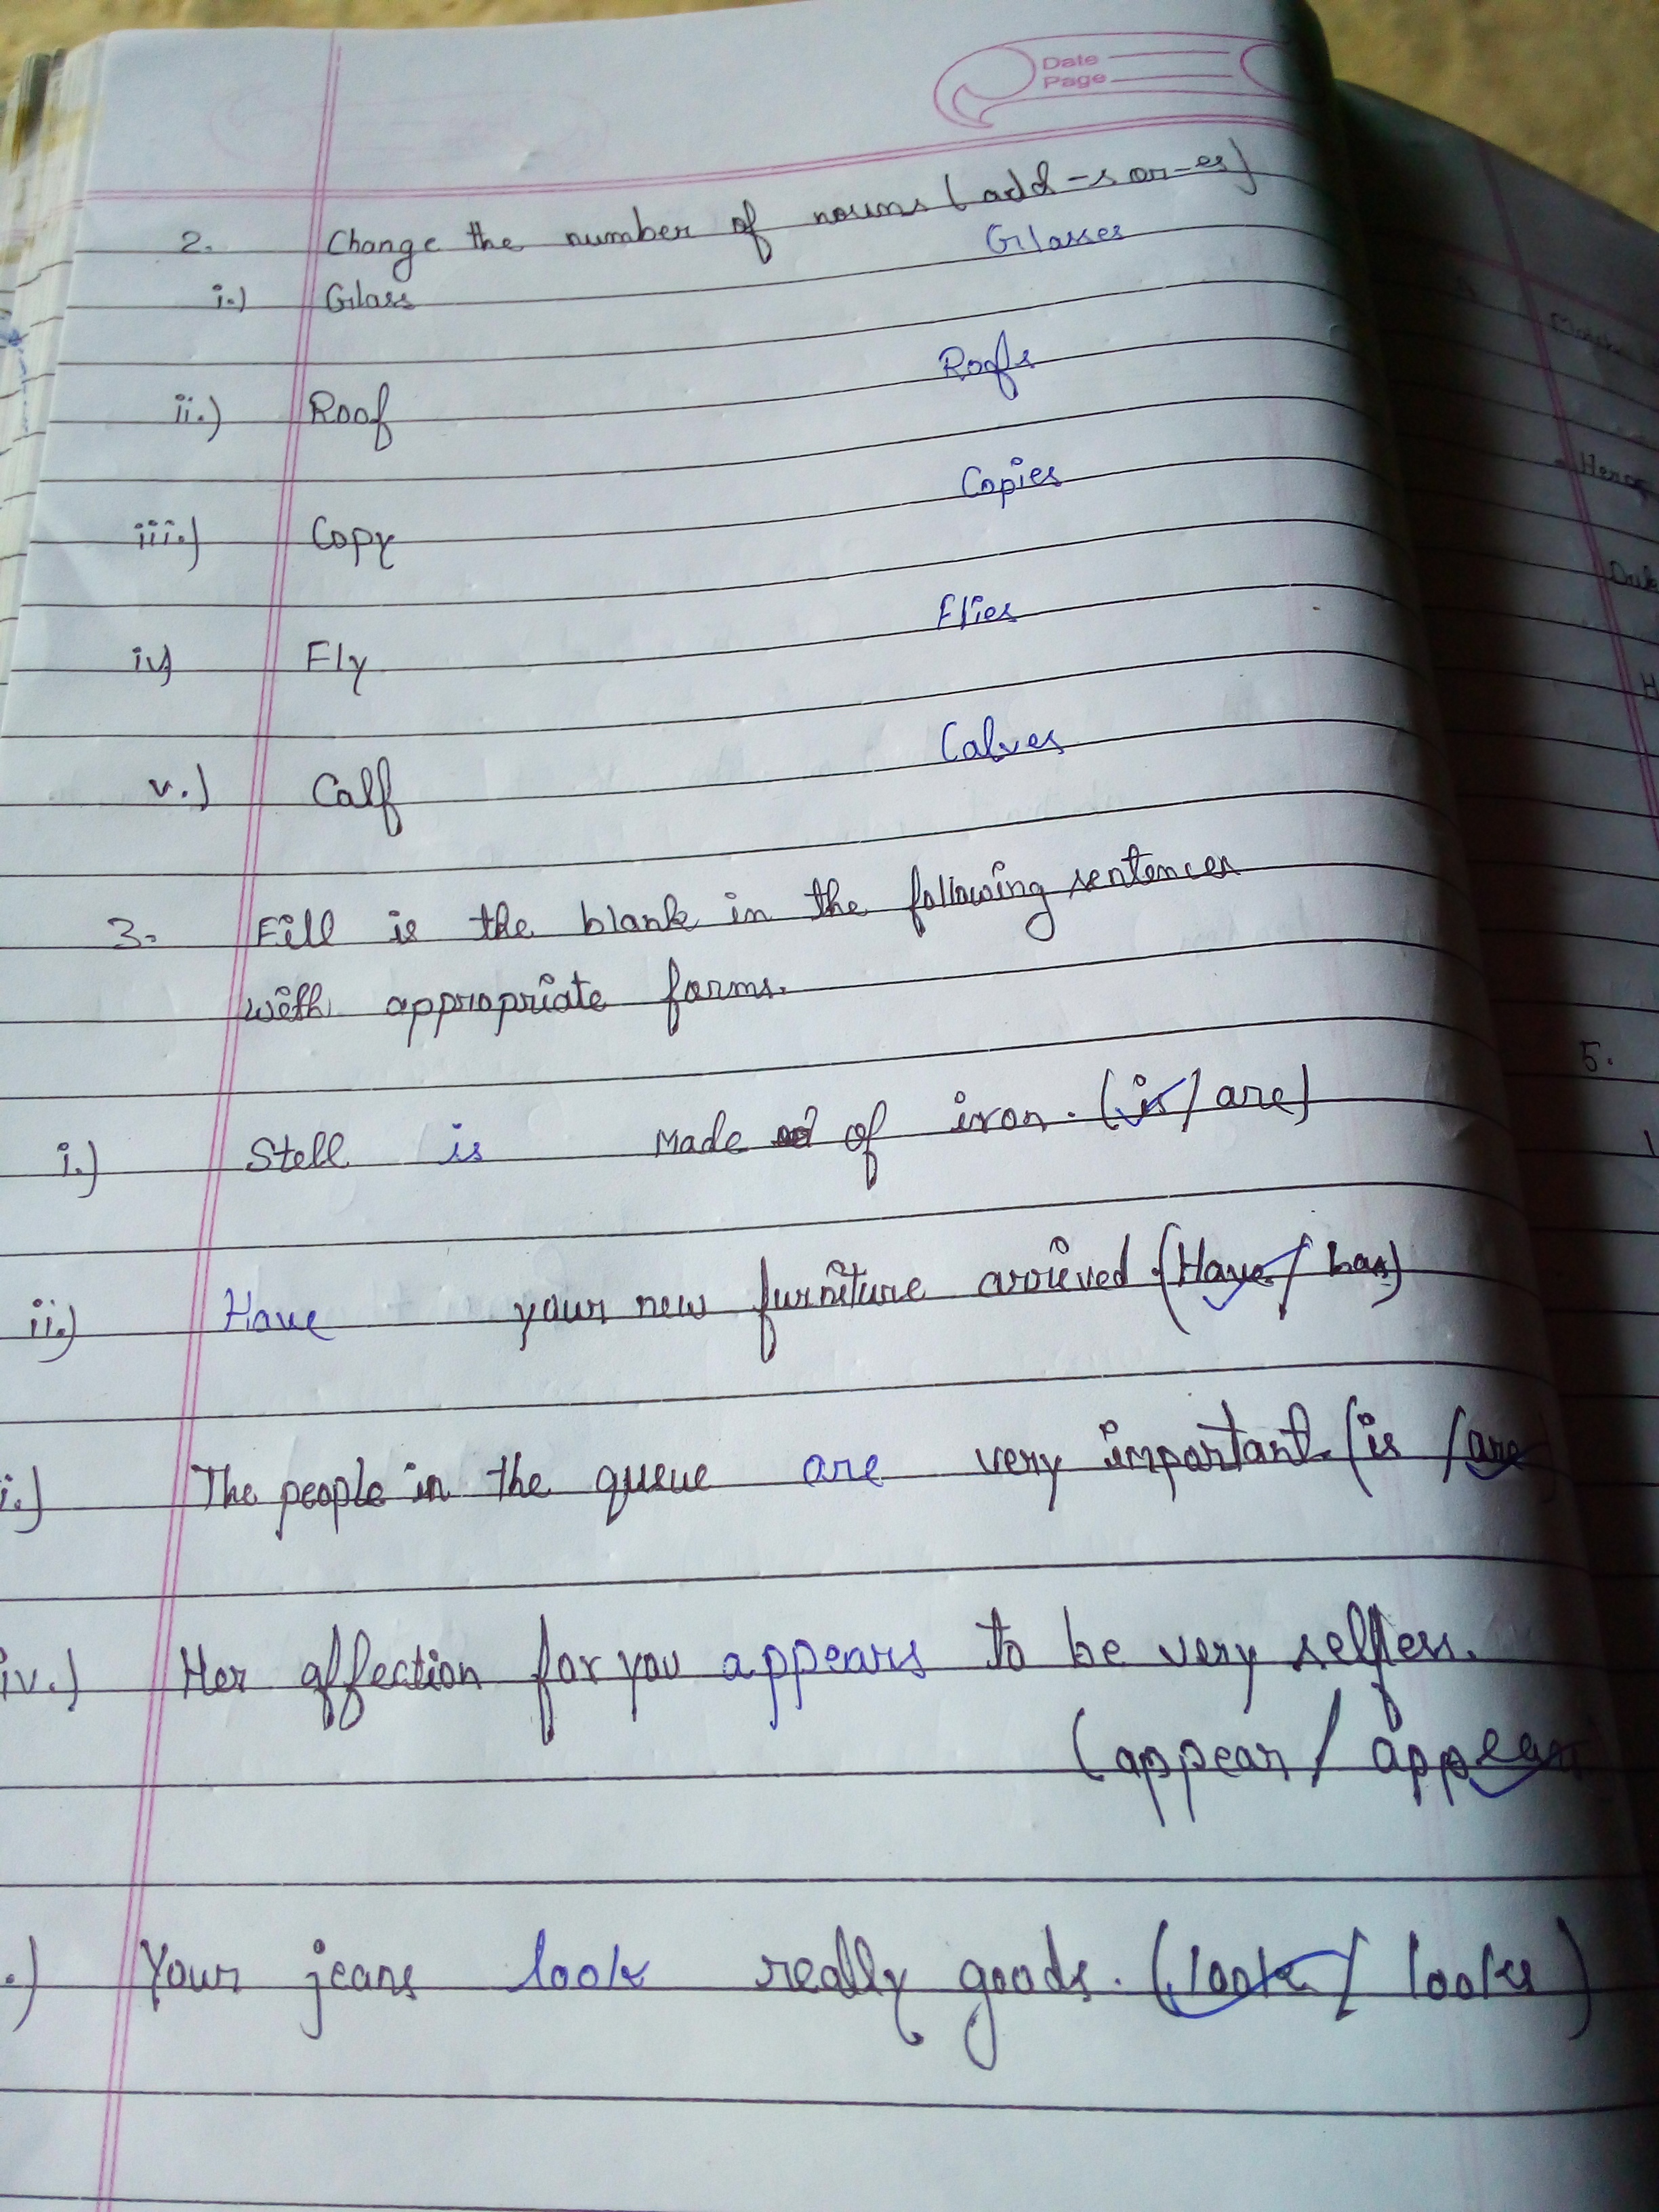 Date
Page
2. Change the number of nouns (add -s or -es)
i.) Glass Glasses
ii.) Roof Roofs
iii.) Copy Copies
iv) Fly Flies
v.) Calf Calves
3. Fill is the blank in the following sentences
with appropriate forms.
i.) Stell is Made of iron. (is / are)
ii.) Have your new furniture arrieved. (Have / has)
i.) The people in the queue are very important. (is / are
iv.) Her affection for you appears to be very selfless.
(appear / appear
.) Your jeans look really goods. (look / looks)
Hence
5.